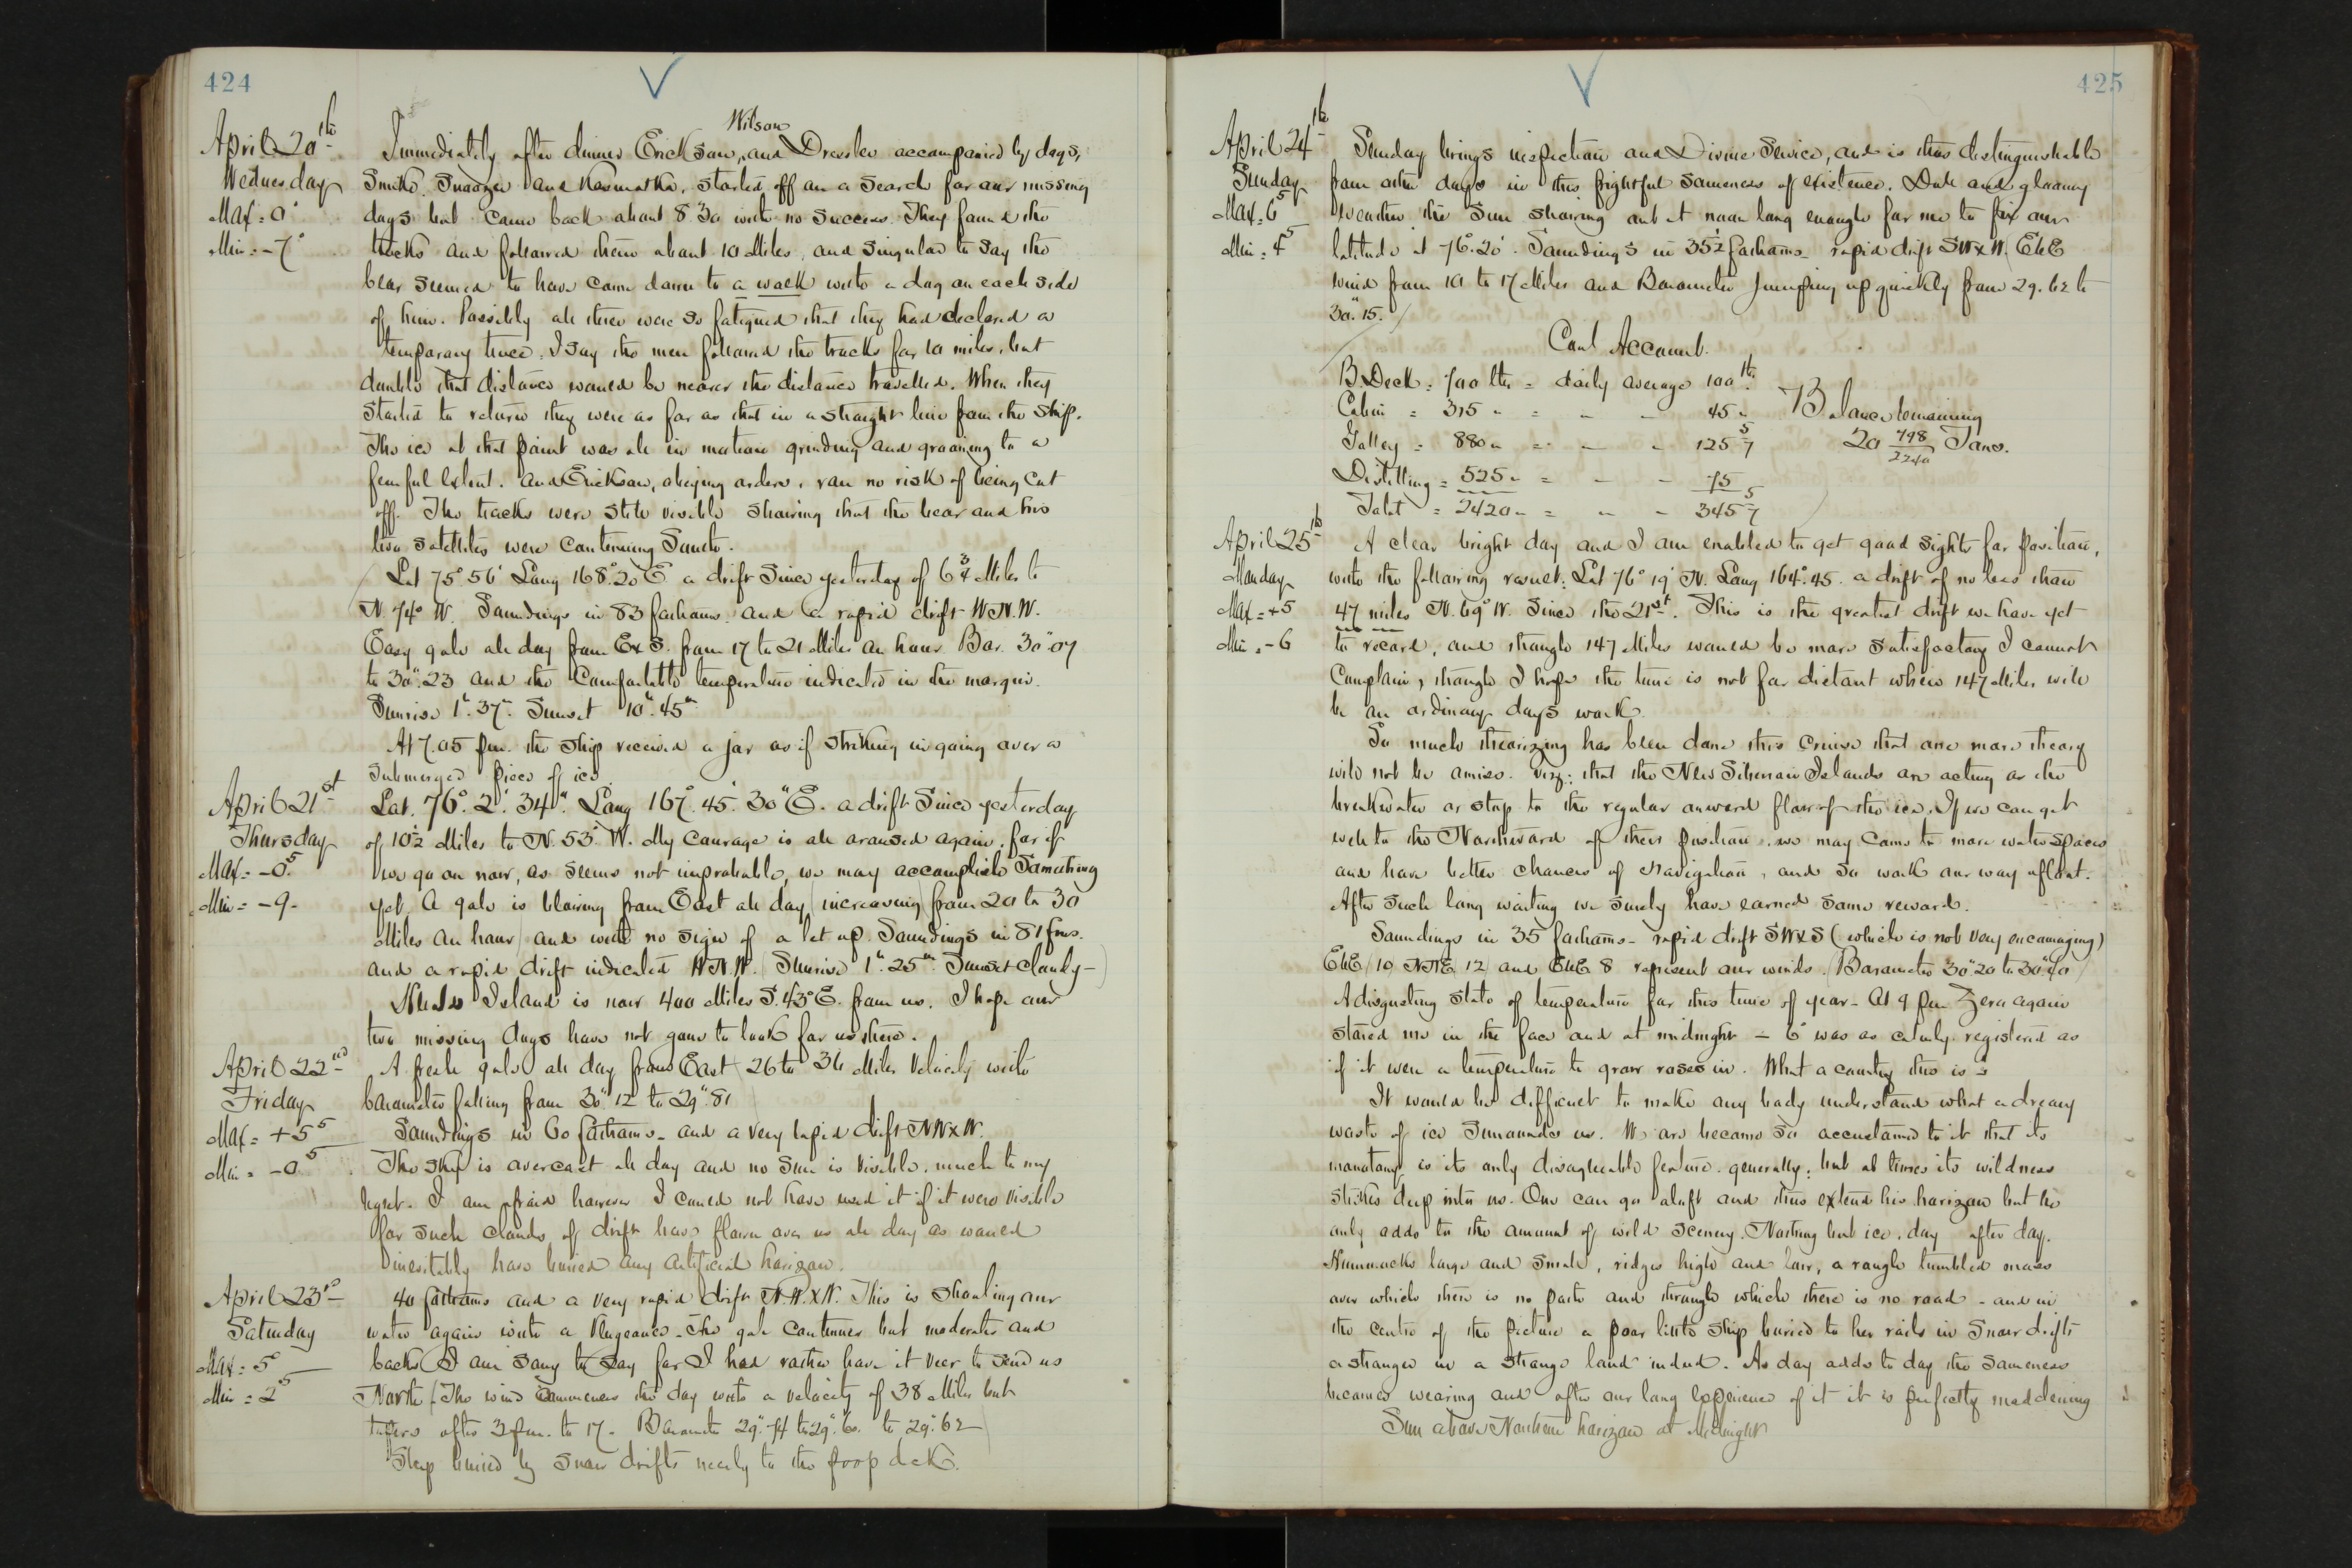 424
April 20th
Wednesday
Max = 0°
Min = -7°
Wilson
Immediately after dinner Ericksen, and Dressler accompanied by dogs,
Smike, Snoozer and Kasmatka, started off on a search for our missing
dogs but came back about 8.30 with no success. They found the
tracks and followed them about 10 Miles, and singular to say the
bear seemed to have come down to a walk with a dog on each side
of him. Possibly all three were so fatigued that they had declared a
temporary truce. I say the men followed the tracks for 10 miles, but
doubt that distance would be nearer the distance travelled. When they
started to return they were as far as that in a straight line from the ship.
The ice at that point was all in motion grinding and groaning to a
fearful extent. and Ericksen, obeying orders, ran no risk of being cut
off. The tracks were still visible showing that the bear and his
two satellites were continuing South.
Lat 75° 56' Long 168° 20 E a drift since yesterday of 6 3/4 Miles to
N. 74° W. Soundings in 83 fathoms and a rapid drift W.N.W.
Easy gale all day from E x S. from 17 to 21 Miles an hour Bar. 30"07
to 30".23 and the comfortable temperature indicated in the margin.
Sunrise 1h. 37m. Sunset 10h. 45m
At 7.05 pm. the ship received a jar as if striking in going over a
submerged piece of ice
April 21st
Thursday
Max = -0.5
Min = -9-
Lat. 76°. 2'. 34". Long 167°. 45'. 30" E. a drift since yesterday
of 10 1/2 Miles to N. 53° W. My courage is all aroused again, for if
we go on now, as seems not improbable, we may accomplish something
yet. A gale is blowing from East all day (increasing) from 20 to 30
Miles an hour) and with no sign of a let up. Soundings in 81 fms.
and a rapid drift indicated W.N.W. (Sunrise 1h. 25m. Sunset cloudy-)
Herald Island is now 400 Miles S. 43° E. from us. I hope our
two missing dogs have not gone to look for us there.
April 22nd
Friday
Max = +5 5
Min = -0 5
A fresh gale all day from East 26 to 36 Miles velocity with
barometer falling from 30". 12 to 29". 81
Soundings in 60 fathoms - and a very rapid drift NW x W.
The sky is overcast all day and no Sun is visible, much to my
regret. I am afraid however I could not have used it if it were visible
for such clouds of drift have flown over us all day as would
inevitably have buried any artificial horizon.
April 23rd
Saturday
Max = 5°
Min = 2 5
40 fathoms and a very rapid drift N.W. x W. This is shoaling our
water again with a vengeance. The gale continues but moderates and
backs (I am sorry to say for I had rather have it veer to send us
North) (The wind commences the day with a velocity of 38 Miles but
tapers after 3 pm. to 17. Barometer 29".74 to 29". 60. to 29". 62
Ship buried by snow drifts nearly to the poop deck.
425
April 24th
Sunday
Max = 6 5
Min = 4 5
Sunday brings inspection and Divine Service, and is thus distinguishable
from other days in this frightful sameness of existence. Dull and gloomy
weather the Sun showing out at noon long enough for me to fix our
latitude at 76°. 20'. Soundings in 35 1/2 fathoms - rapid drift SW x W. (EbE
wind from 10 to 17 Miles and Barometer jumping up quickly from 29. 62 to
30". 15.)
Coal Account.
B. Deck = 700 lbs = daily average 100 lbs.
Cabin = 315 " = " - 45 "
Galley = 880 " = - - 125 5/7
Distilling = 525 " = - - 75
Total = 2420 " = " - 345 5/7
Balance remaining
20 498/2240 Tons.
April 25th
Monday
Max = +5
Min = -6
A clear bright day and I am enabled to get good sights for position,
with the following result: Lat 76° 19' N. Long 164°. 45. a drift of no less than
47 miles N. 69° W. since the 21st. This is the greatest drift we have yet
to record, and though 147 Miles would be more satisfactory I cannot
complain, though I hope the time is not far distant when 147 Miles will
be an ordinary days work.
So much theorizing has been done this cruise that one more theory
will not be amiss. Viz: that the New Siberian Islands are acting as the
breakwater or stop to the regular onward flow of the ice. If we can get
well to the Northward of their position, we may come to more water spaces
and have better chances of navigation, and so work our way afloat.
After such long waiting we surely have earned some reward.
Soundings in 35 fathoms - rapid drift SW x S (which is not very encouraging)
EbE (10 NNE 12) and EbE 8 represent our winds. (Barometer 30"20 to 30"40)
A disgusting state of temperature for this time of year - At 9 pm Zero again
stared me in the face and at midnight - 6° was as calmly registered as
if it were a temperature to grow roses in. What a country this is -
It would be difficult to make any body understand what a dreary
waste of ice surrounds us. We are become so accustomed to it that its
monotony is its only disagreeable feature generally: but at times its wildness
strikes deep into us. One can go aloft and thus extend his horizon but he
only adds to the amount of wild scenery. Nothing but ice, day after day.
Hummocks large and small, ridges high and low, a rough tumbled mass
over which there is no path and through which there is no road - and in
the centre of the picture a poor little ship buried to her rails in snow drifts
a stranger in a strange land indeed. As day adds to day the sameness
becomes wearing and after our long experience of it it is perfectly maddening
Sun above Northern horizon at Midnight